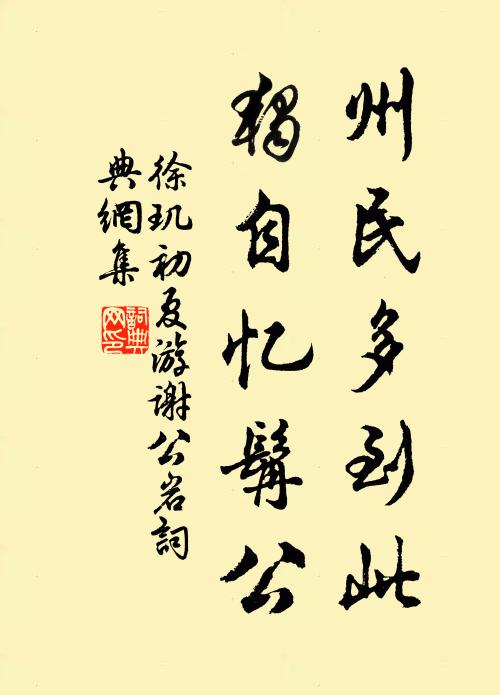 州民多到此
独自忆髯公
徐玑初夏游谢公岩詞
典網集
詞典网印